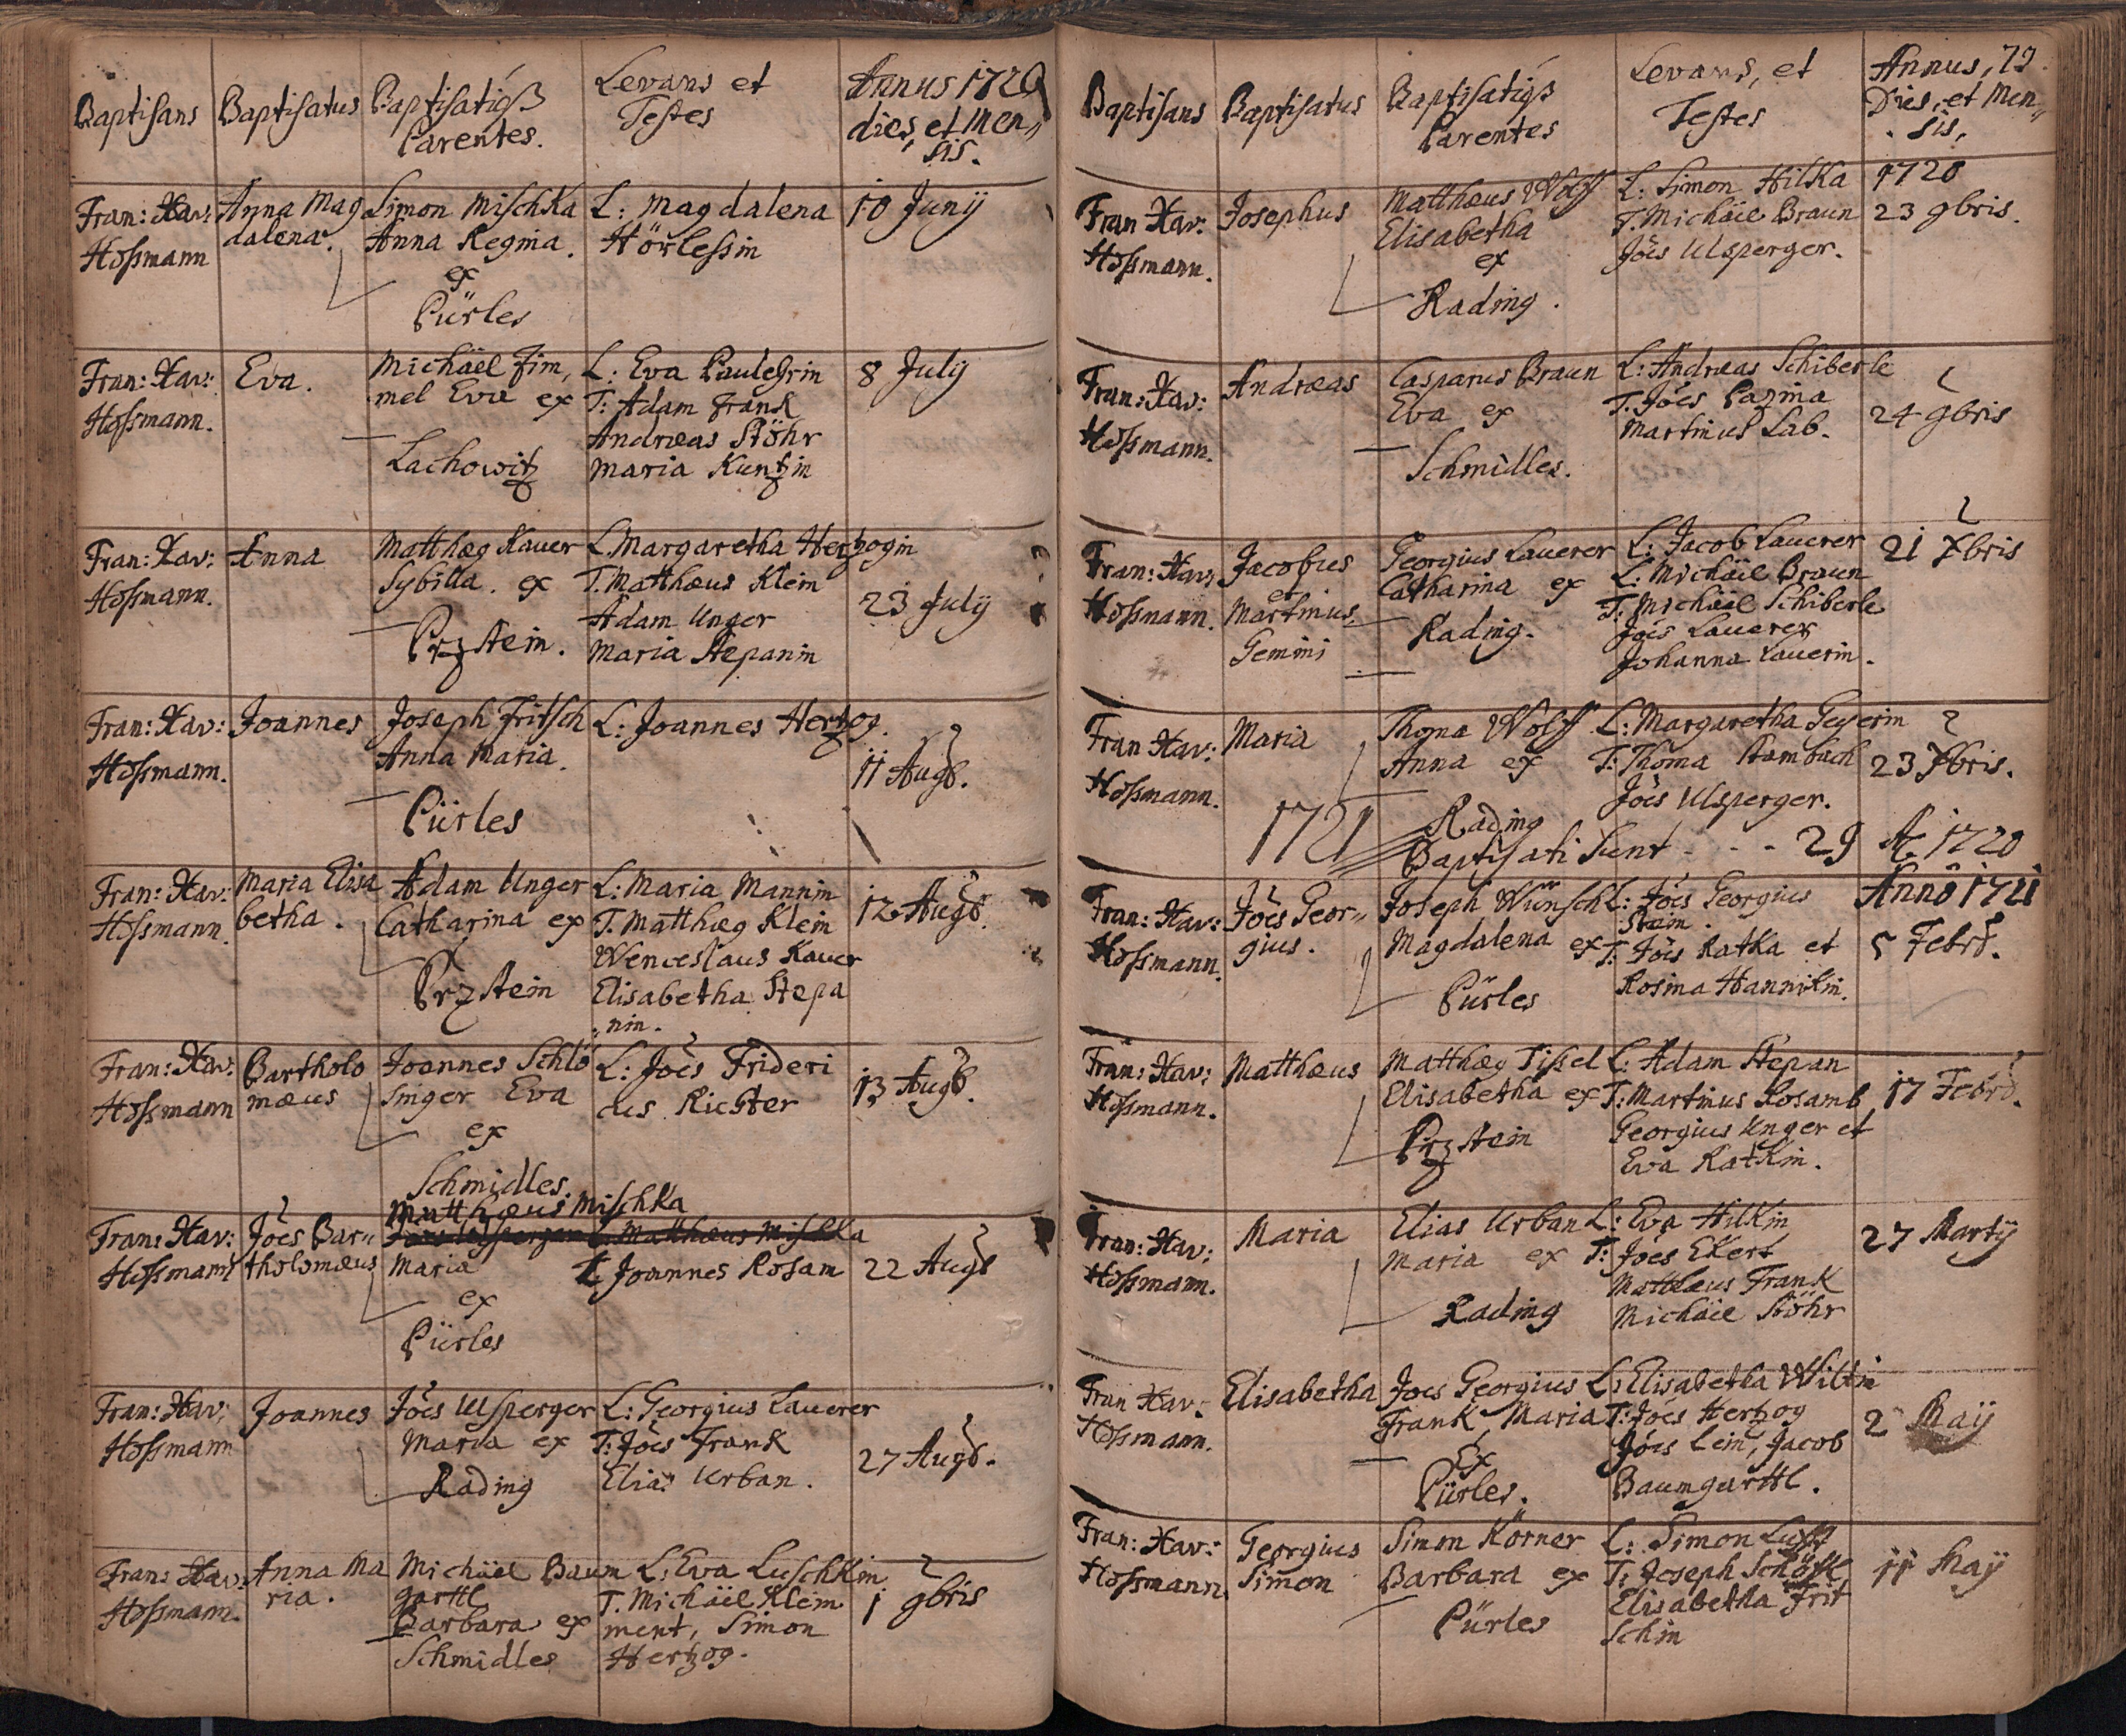 Baptisans
Baptisatus
Baptisatiqß
Parentes.
Levans et
Testes
Annus 1720
dies, et Men„
sis.
Fran: Xav:
Hoffmann
Anna Mag
dalena.
Simon Mischka
Anna Regina.
ex
Pürles
L: Magdalena
Hörlessin
10 Junij
Fran: Xav:
Hoffmann.
Eva.
Michäel Zim,
mel Eva ex
Lachowitz
L: Eva
T: Adam Frank
Andreas Stöhr
Maria Kuntzin
8 July
Fran: Xav:
Hoffmann.
Anna
Matthæq Kauer
Sybilla. ex
Przstein.
L. Margaretha Hertzogin
T. Matthæus Klein
Adam Unger
Maria Stepanin
23 July
Fran: Xav:
Hoffmann.
Joannes
Joseph Fritsch
Anna Maria.
Pürles
L: Joannes Hertzog.
11 Augs.
Fran: Xav:
Hoffmann.
Maria Elisa
betha.
Adam Unger
Catharina ex
Przstein
L: Maria Mannin
T. Matthæq Klein
Wenceslaus Kauer
Elisabetha Stepa
„nin.
12 Augs.
Fran: Xav:
Hoffmann
Bartholo
mæus
Joannes Schlö
singer Eva
ex
Schmidles.
L: Jöes Frideri
cus Richter
13 Augs.
Fran: Xav:
Hoffmann
Jöes Bar„
tholomæus
Matthæus Mischka
Maria
ex
Pürles
L Joannes Rosam
22 Augs
Fran: Xav:
Hoffmann
Joannes
Jöes Ulsperger
Maria ex
Rading
L: Georgius Lauerer
T: Jöes Frank
Elias Urban.
27 Augs.
Fran: Xav:
Hoffmann.
Anna Ma
ria.
Michäel Baum
garttl
Barbara ex
Schmidles
L: Eva Luschkin
T. Michäel Klem
ment, Simon
Hertzog.
1 9bris
Baptisans
Baptisatus
Baptisatiqß
Parentes
Levans, et
Testes
Annus, 72
Dies, et Men„
sis,
Fran Xav:
Hoffmann.
Josephus
Matthæus Wolff
Elisabetha
ex
Rading.
L: Simon Hilka
T. Michäel Braun
Jöes Ulsperger.
1720
23 9bris.
Fran: Xav:
Hoffmann.
Andreas
Casparus Braun
Eva ex
Schmidles.
L: Andreas Schiberle
T. Jöes Pazina
Martinus Lab.
24 9bris
Fran: Xav:
Hoffmann.
Jacobus
et
Martinus,
Gemini
Georgius Lauerer
Catharina ex
Rading.
L: Jacob Lauerer
L: Michäel Braun
T: Michäel Schiberle
Jöes Lauerer
Johanna Lauerin.
21 Xbris
Fran Xav:
Hoffmann.
Maria
Thoma Wolff
Anna ex
Rading
L: Margaretha Geyerin
T: Thoma Stambach
Jöes Ulsperger.
23 Xbris.
1721
Baptisati Sunt - - - 29 Aõ 1720
Fran: Xav:
Hoffmann.
Jöes Geor„
gius.
Joseph Wünsch
Magdalena ex
Pürles
L: Jöes Georgius
Stein.
T: Jöes Ratka et
Rosina Hannikin.
Annô 1721
5 Febrs.
Fran: Xav:
Hoffmann.
Matthæus
Matthæq Tissel
Elisabetha ex
Przstein
L: Adam Stepan
T: Martinus Rosamb
Georgius Unger et
Eva Ratkin.
17 Febrs.
Fran: Xav:
Hoffmann.
Maria
Elias Urban
Maria ex
Rading
L: Eva Hilkin
T: Jöes Ekert
Matthæus Frank
Michäel Stöhr
27 Martij
Fran Xav:
Hoffmann.
Elisabetha
Joes Georgius
Frank, Maria
Ex
Pürles.
L: Elisabetha Wiltin
T: Jöes Hertzog
Jöes Lein, Jacob
Baumgarttl.
2 Maij
Fran: Xav:
Hoffmann.
Georgius
Simon
Simon Körner
Barbara ex
Pürles
L: Simon
T: Joseph
Elisabetha Frit
schin
11 Maij